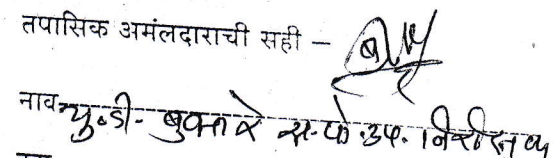 तपासिक अमंलदाराची सही –
नाव यु. डी. बुक्तरे स. पो. उप. निरीक्षक